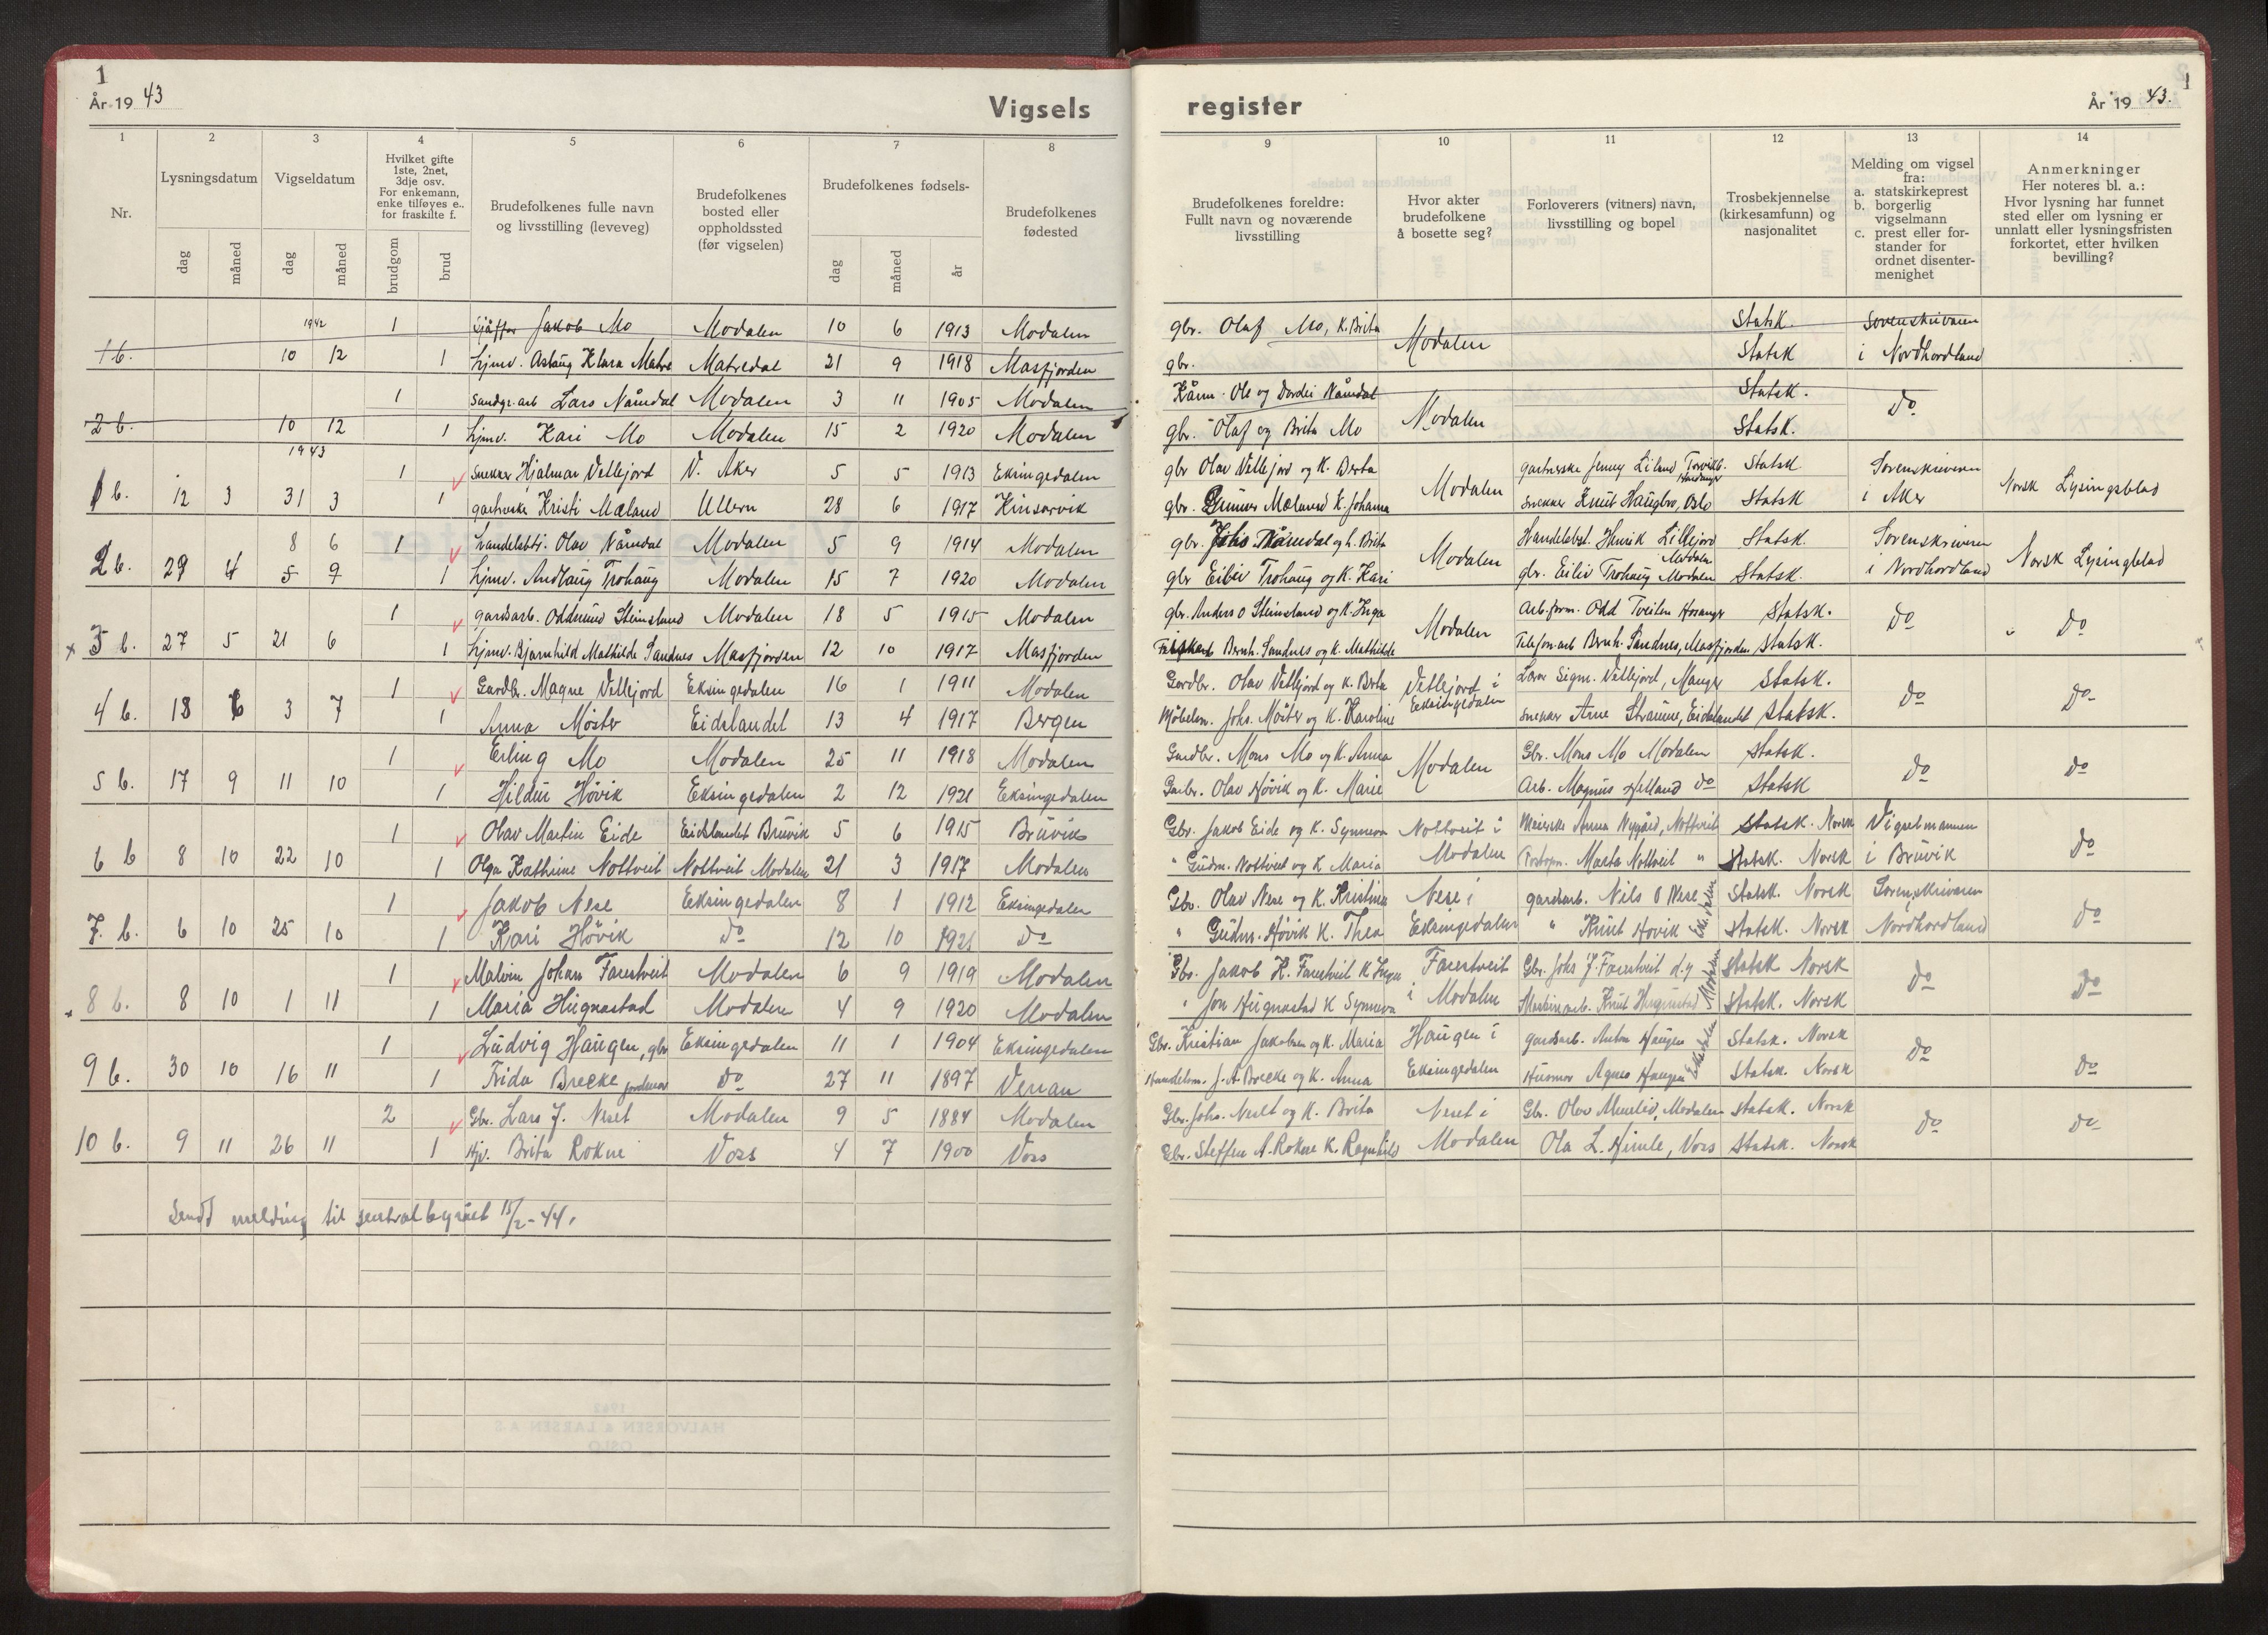 1
År 19 43
Vigsels
1 2 3 4 5 6 7 8
Nr.
Lysningsdatum
dag måned
Vigseldatum
dag måned
Hvilket gifte
1ste, 2net,
3dje osv.
For enkemann,
enke tilføyes e..
for fraskilte f.
brudgom brud
Brudefolkenes fulle navn
og livsstilling (leveveg)
Brudefolkenes
bosted eller
oppholdssted
(før vigselen)
Brudefolkenes fødsels-
dag måned år
Brudefolkenes
fødested
1942 1 Sjåffør Jakob Mo Modalen 10 6 1913 Modalen
1 b. 10 12 1 hjmv. Aslaug Klara Matre Matredal 21 9 1918 Masfjorden
1 Sandgr.arb Lars Nåmdal Modalen 3 11 1905 Modalen
2 b. 10 12 1 hjmv. Kari Mo Modalen 15 2 1920 Modalen
1943
1 Snekker Hjalmar Vetlejord V. Aker 5 5 1913 Eksingedalen
1 b. 12 3 31 3 1 gartnerske Kristi Mæland Ullern 28 6 1917 Kinsarvik
8 6 1 handelsbtj. Olav Nåmdal Modalen 5 9 1914 Modalen
2 b. 29 4 5 9 1 hjmv. Andlaug Trohaug Modalen 15 7 1920 Modalen
1 gardsarb. Oddmund Steinsland Modalen 18 5 1915 Modalen
x 3 b. 27 5 21 6 1 hjmv. Bjarnhild Mathilde Sandnes Masfjorden 12 10 1917 Masfjorden
1 Gardbr. Magne Vetlejord Eksingedalen 16 1 1911 Modalen
4 b. 18 6 3 7 1 Anna Möster Eidslandet 13 4 1917 Bergen
1 Erling Mo Modalen 25 11 1918 Modalen
5 b. 17 9 11 10 1 Hildur Hövik Eksingedalen 2 12 1921 Eksingedalen
1 Olav Martin Eide Eidslandet Bruvik 5 6 1915 Bruvik
6 b 8 10 22 10 1 Olga Kathrine Nottveit Nottveit Modalen 21 3 1917 Modalen
1 Jakob Nese Eksingedalen 8 1 1912 Eksingedalen
7. b. 6 10 25 10 1 Kari Hövik do 12 10 1921 do
1 Malvin Johan Farestveit Modalen 6 9 1919 Modalen
8 b. 8 10 1 11 1 Maria Hugnastad Modalen 4 9 1920 Modalen
1 Ludvig Haugen, gbr Eksingedalen 11 1 1904 Eksingedalen
9 b. 30 10 16 11 1 Frida Brecke jordmor do 27 11 1897 Verran
2 Gbr. Lars J. Neset Modalen 9 5 1884 Modalen
10 b. 9 11 26 11 1 Hjv. Brita Rokne Voss 4 7 1900 Voss
Sendt melding til sentralbyrået 15/2-44.
1
register
År 19 43.
9 10 11 12 13 14
Brudefolkenes foreldre:
Fullt navn og noværende
livsstilling
Hvor akter
brudefolkene
å bosette seg?
Forloverers (vitners) navn,
livsstilling og bopel
Trosbekjennelse
(kirkesamfunn) og
nasjonalitet
Melding om vigsel
fra:
a. statskirkeprest
b. borgerlig
vigselmann
c. prest eller for-
stander for
ordnet disenter-
menighet
Anmerkninger
Her noteres bl. a.:
Hvor lysning har funnet
sted eller om lysning er
unnlatt eller lysningsfristen
forkortet, etter hvilken
bevilling?
gbr. Olaf Mo, K. Brita Modalen Statsk. Sorenskrivaren
gbr. Statsk i Nordhordland
Kårm. Ole og Dordei Nåmdal Modalen Statsk. do
gbr. Olaf og Brita Mo Statsk.
gbr Olav Vetlejord og K. Berta Modalen gartnerske Jenny Liland Statsk Sorenskriveren
gbr. Gunnar Mæland K. Johanna snekker Knut Haugbro, Oslo Statsk i Aker Norsk Lysingsblad
gbr. Johs Nåmdal og h. Brita Modalen Handelsbet. Henrik Lillejord Modalen Statsk. Sorenskriveren
gbr Eiliv Trohaug og K. Kari gbr. Eiliv Trohaug Modalen Statsk. i Nordhordland Norsk Lysingsblad
gbr. Anders O Steinsland og K. Inga Modalen Arb.form. Odd Tveiten Hosanger Statsk. do do
Bernh. Sandnes og K. Mathilde Telefon.arb Bernh. Sandnes, Masfjorden Statsk.
Gardbr. Olav Vetlejord og K. Brta Vetlejord i Lærar Sigm. Vetlejord, Manger Statsk. do do
Möbelsn. Johs. Möster og K. Karoline Eeksingedalen snekker Arne Straume, Eidslandet Statsk.
Gardbr. Mons Mo og K. Anna Modalen Gbr. Mons Mo Modalen Statsk. do do
Garbr. Olav Hövik og K. Marie Arb. Magnus Helland do Statsk
Gbr. Jakob Eide og K. Synneva Nottveit i Meierske Anna Nygård, Nottveit Statsk. Norsk Vigselmannen do
" Gudm. Nottveit og K Maria Modalen Postopn. Marta Nottveit " Statsk. Norsk i Bruvik
Gbr. Olav Nese og K. Kristina Nese i gardarb. Nils O Nese Statsk. Norsk Sorenskrivaren do
" Gudm. Hövik K. Thea Eksingedalen " Knut Hovik Statsk. Norsk Nordhordland
Gbr. Jakob K. Farestveit K Inga Farestveit Gbr. Johs J. Farestveit d.y Modalen Statsk Norsk do do
" Jon Hugnastad K Synneva i Modalen Maskinarb. Knut Hugnastad Statsk. Norsk
Gbr. Kristian Jakobsen og K. Maria Haugen i gardsarb. Anton Haugen Statsk. Norsk do do
Handelsm. J. A. Brecke og K. Anna Eksingedalen Husmor Agnes Haugen Statsk. Norsk
Gbr. Johs. Neset og K. Brita Neset i Gbr. Olav Modalen Statsk. Norsk do do
Gbr. Steffen A. Rokne K. Ragnhild Modalen Ola L. Himle, Voss Statsk. Norsk